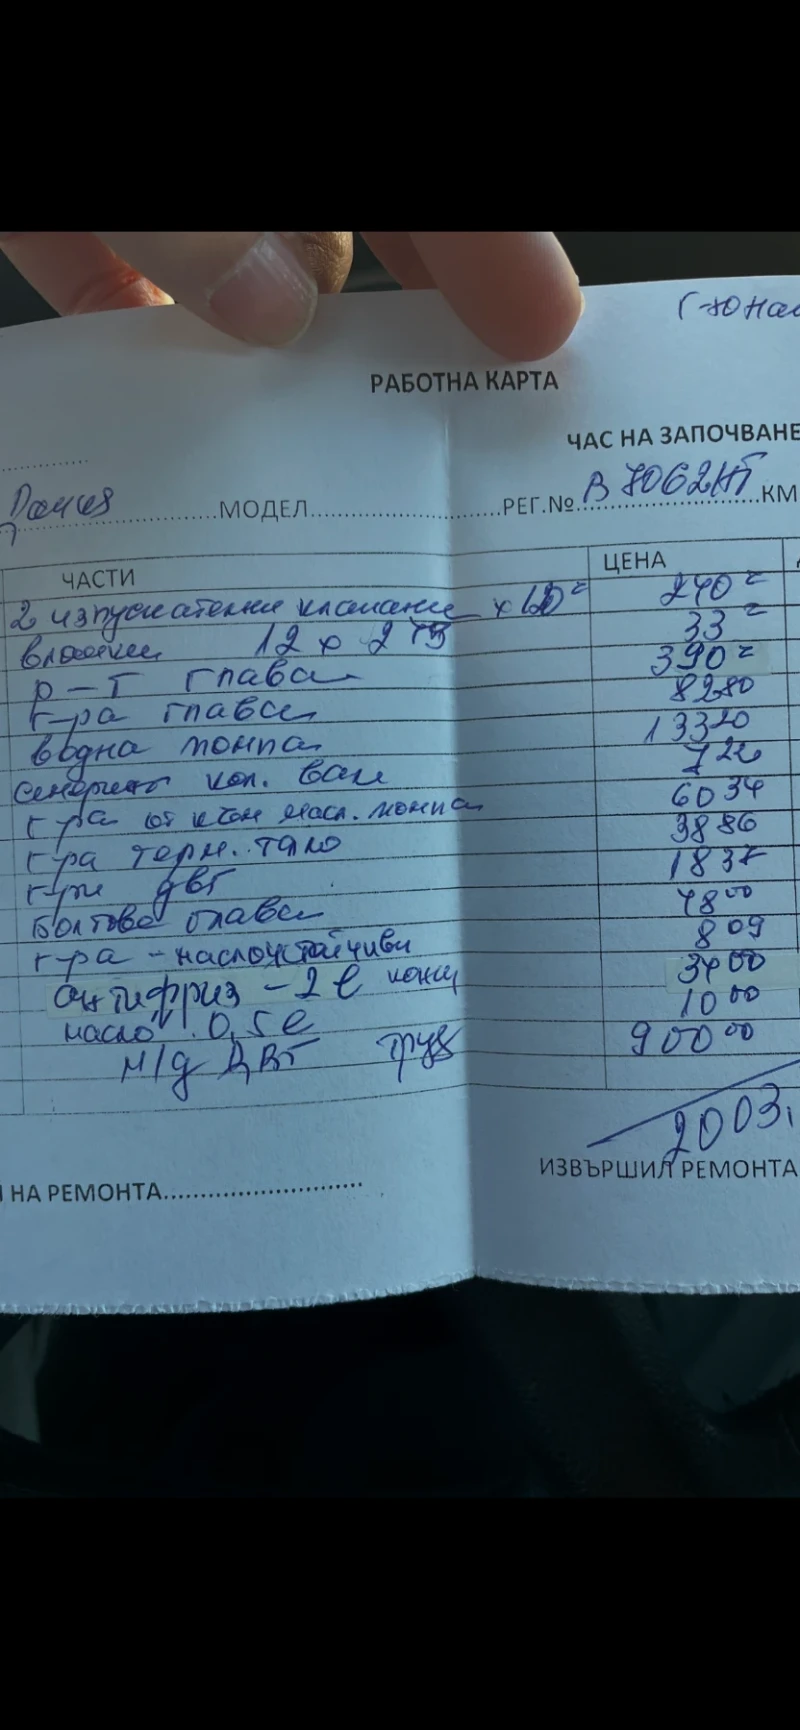 РАБОТНА КАРТА
ЧАС НА ЗАПОЧВАНЕ
МОДЕЛ РЕГ.№ В 7062НТ КМ
ЧАСТИ ЦЕНА
2 изпускателни клапани x 120= 240=
12 x 275 33=
р-т глава 390=
г-ра глава 8280
водна помпа 13320
семеринг кол. вал 722
г-ра от към масл. помпа 6034
г-ра терм. тяло 3886
г-ри двг 1837
болтове глава 7800
г-ра - маслоустойчиви 809
антифриз - 2 l конц 3400
масло 0,5 l 1000
м/д ДВГ труд 90000
2003,
НА РЕМОНТА
ИЗВЪРШИЛ РЕМОНТА